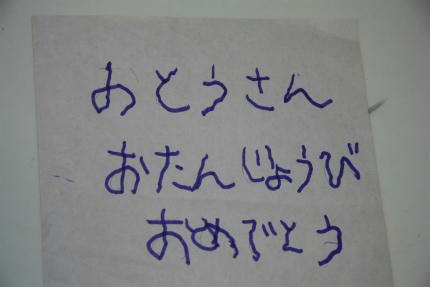 おとうさん
おたんじょうび
おめでとう